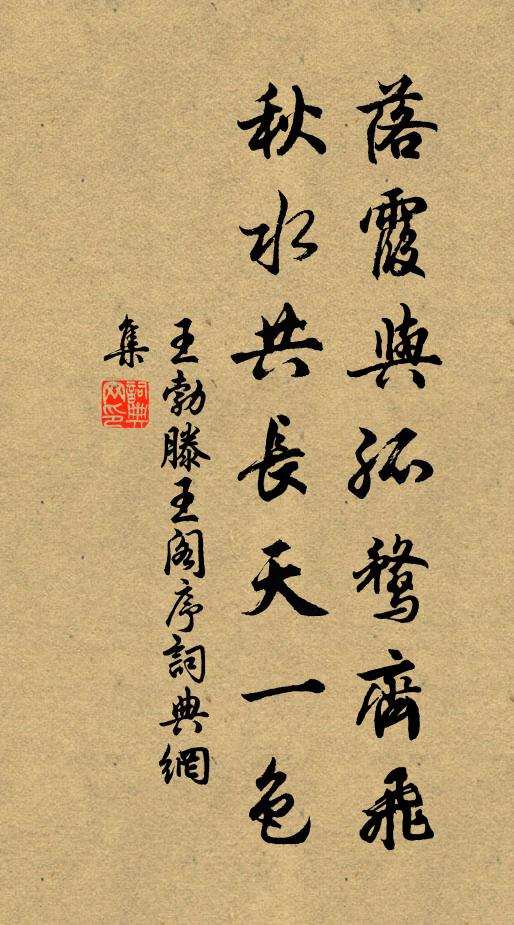 落霞與孤鶩齊飛
秋水共長天一色
王勃滕王阁序詞典網
集
詞典網印